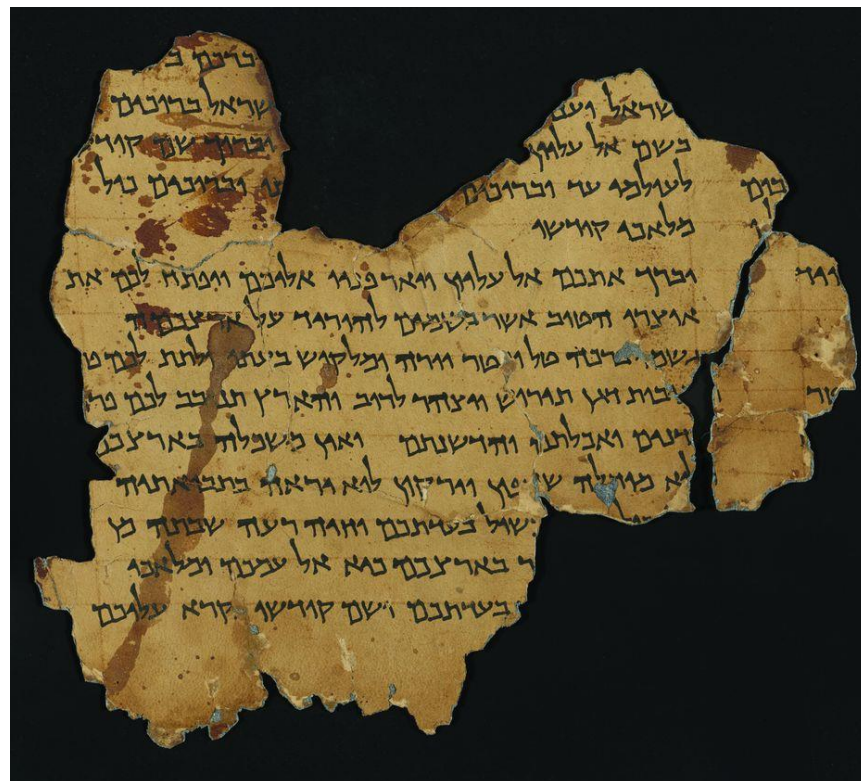 ברכם
שראל ישראל ברוכים
בשם אל עליון וברוך שם
לעולמי עד וברוכים וברוכים כול
מלאכי קודשו
יברך אתכם אל עליון ויאר פניו אליכם ויפתח לכם את
אוצרו הטוב אשר בשמים להוריד על ארצכמה
גשמי ברכה טל ומטר יורה ומלקוש בעתו ולתת לכם
דגן תירוש ויצהר לרוב והארץ תנובב לכם
ואכלתם והדשנתם ואין משכלה בארצכם
לא מוחלה וירקון לוא יראה בתבואתיה
שול בעדתכם וחיה רעה שבתה מן
ר בארצכם כיא אל עמכם ומלאכי
בעדתכם ושם קודשו נקרא עליכם